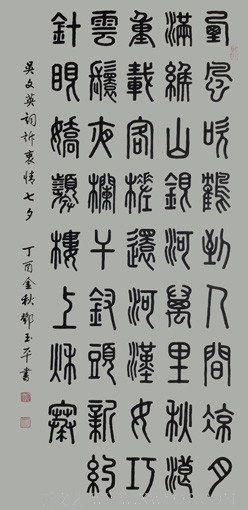 西風吹鶴到人間涼月
滿緱山銀河萬里秋浪
重載客槎還河漢女巧
雲鬟夜欄干釵頭新約
針眼嬌顰樓上秋寒
吳文英詞訴衷情七夕 丁酉金秋鄧玉平書